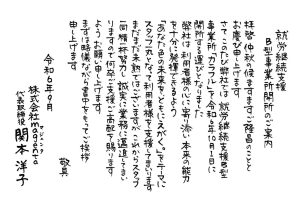 就労継続支援
B型事業所開所のご案内
拝啓 仲秋の候ますますご隆昌のことと
お慶び申し上げます。
さて、このたび弊社では、就労継続支援B型
事業所「カラフル」を令和6年10月1日に
開所する運びとなりました。
弊社は、利用者様の心に寄り添い、本来の能力
を十分に発揮できるよう
「あなた色の未来をともにえがく。」をテーマに
スタッフ一丸となって利用者様を支援してまいります。
まだまだ未熟ではございますが、これからスタッフ
一同、精一杯努力し、誠実に業務に邁進してまい
りますので、何卒ご支援ご高配を賜ります
ようお願い申し上げます。
まずは略儀ながら書中をもってご挨拶
申し上げます。
敬具
令和6年9月
株式会社magenta
代表取締役 関本 洋子